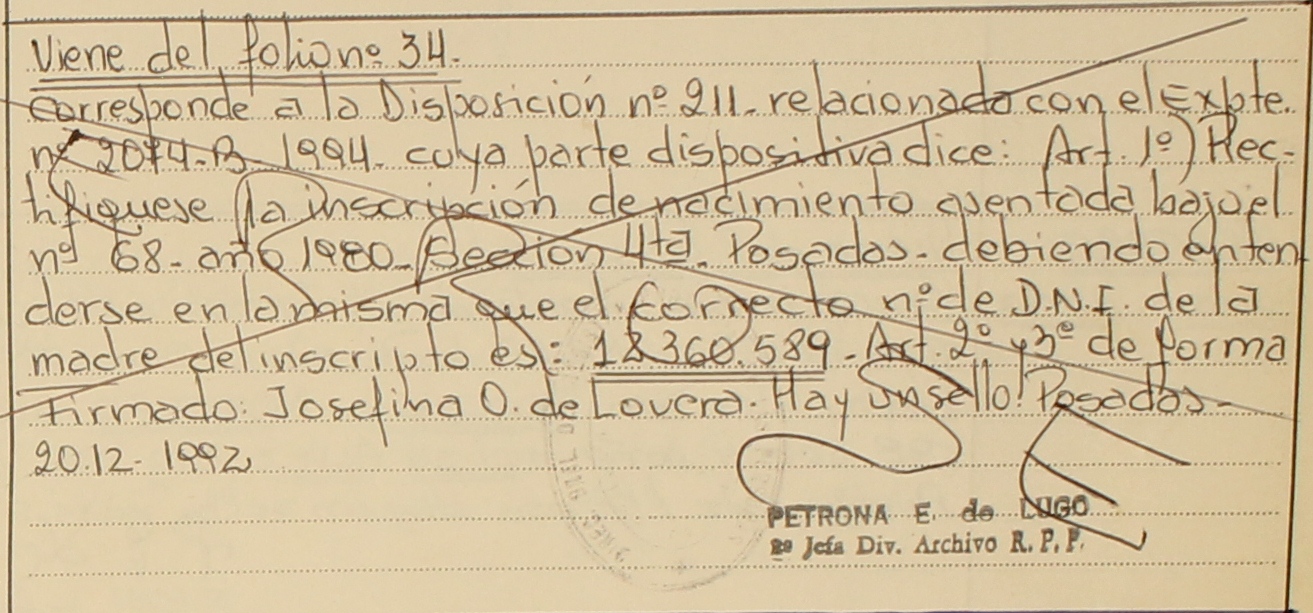 Viene del folio nº 34.
corresponde a la Disposición nº 211. relacionado con el Expte.
nº 2074-B-1994. cuya parte dispositiva dice: Art. 1º) Rec-
tifiquese la inscripción de nacimiento asentada bajo el
nº 68- año 1980- Sección 4ta. Posadas- debiendo enten
derse en la misma que el correcto nº de D.N.I. de la
madre del inscripto es: 18.360.589- Art. 2º y 3º de forma
Firmado: Josefina O. de Lovera. Hay Un sello! Posadas-
20.12-1992
PETRONA E. de LUGO
2º Jefa Div. Archivo R. P. P.